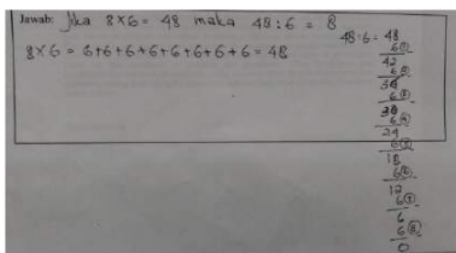 Jawab: Jika 8×6 = 48 maka 48:6 = 8
8×6 = 6+6+6+6+6+6+6+6 = 48
48:6 = 48
6①
42
6②
6③
30
6④
24
6⑤
18
6⑥
12
6⑦
6
6⑧
0